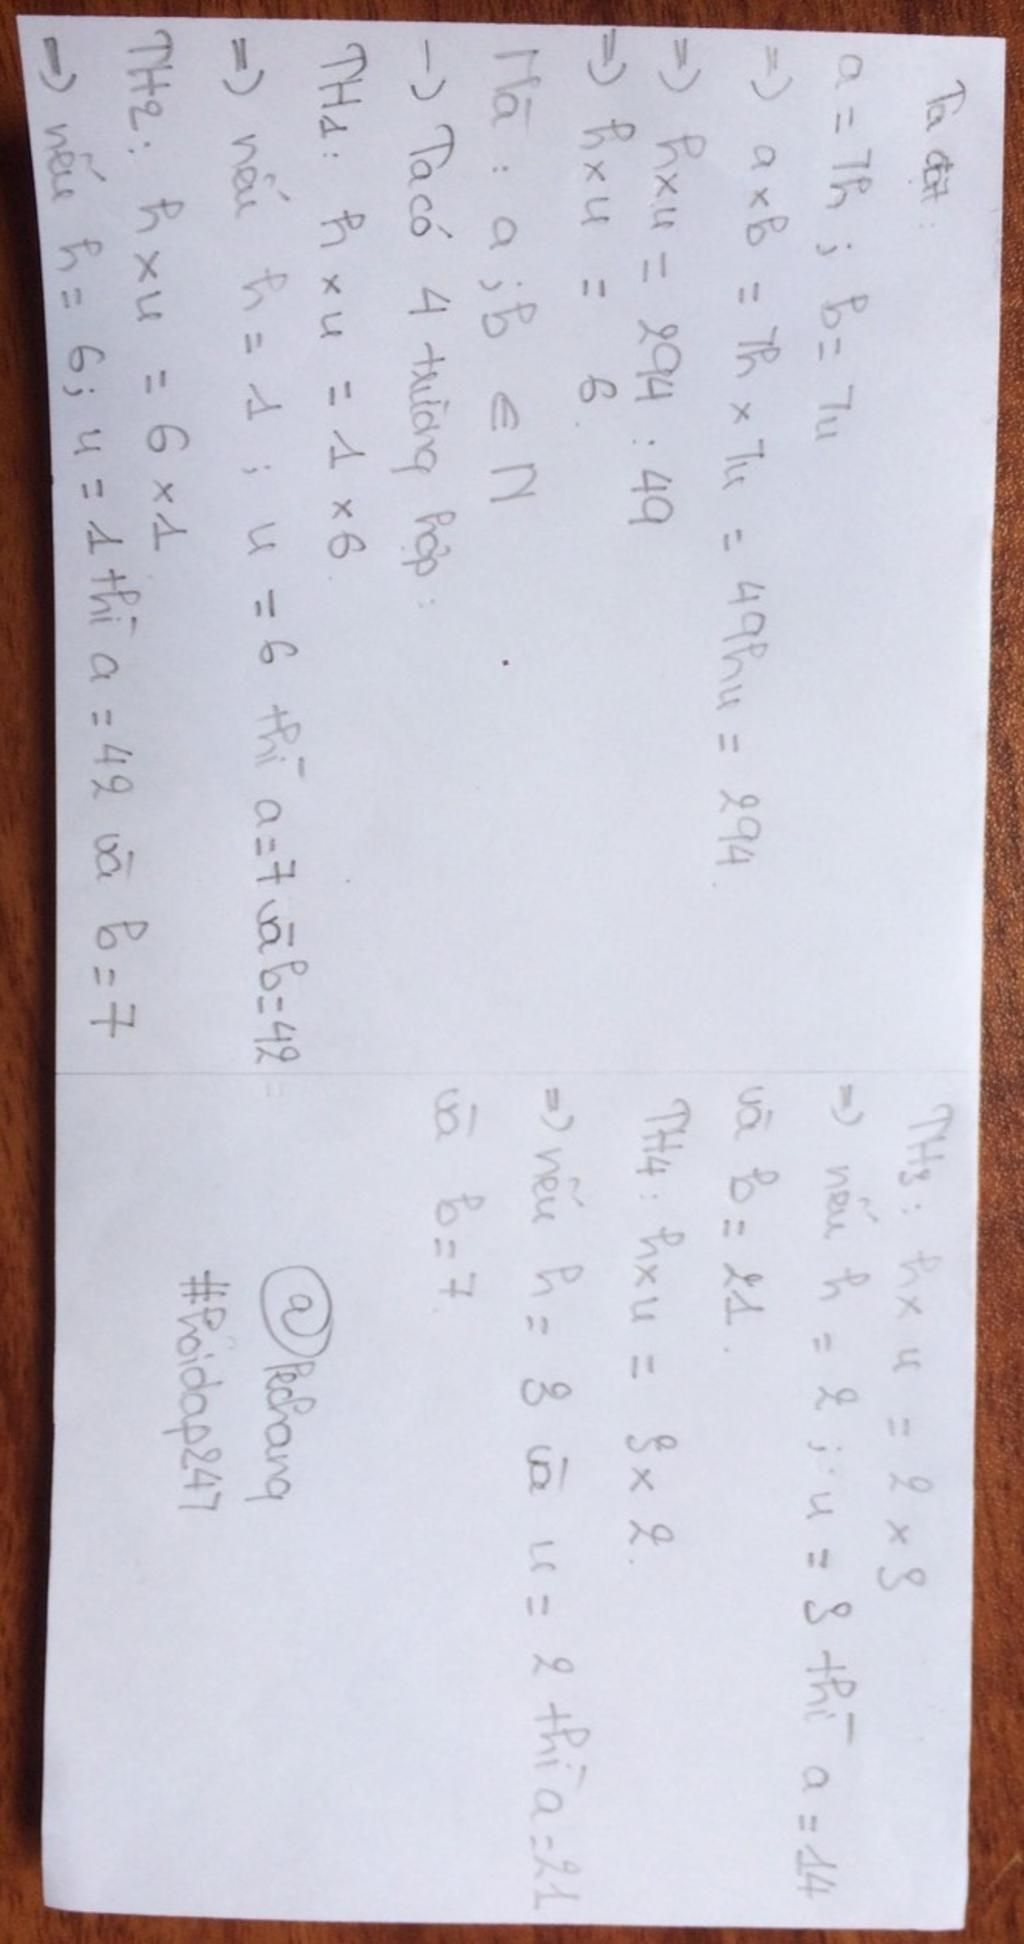 Ta đặt:
a = 7h ; b = 7u
=> a x b = 7h x 7u = 49hu = 294.
=> h x u = 294 : 49
=> h x u = 6.
Mà : a ; b ∈ N
-> Ta có 4 trường hợp :
TH1 : h x u = 1 x 6
=> nếu h = 1 ; u = 6 thì a = 7 và b = 42
TH2 : h x u = 6 x 1
=> nếu h = 6 ; u = 1 thì a = 42 và b = 7
TH3 : h x u = 2 x 3
=> nếu h = 2 ; u = 3 thì a = 14
và b = 21.
TH4 : h x u = 3 x 2.
=> nếu h = 3 và u = 2 thì a = 21
và b = 7.
@Pechang
#hoidap247